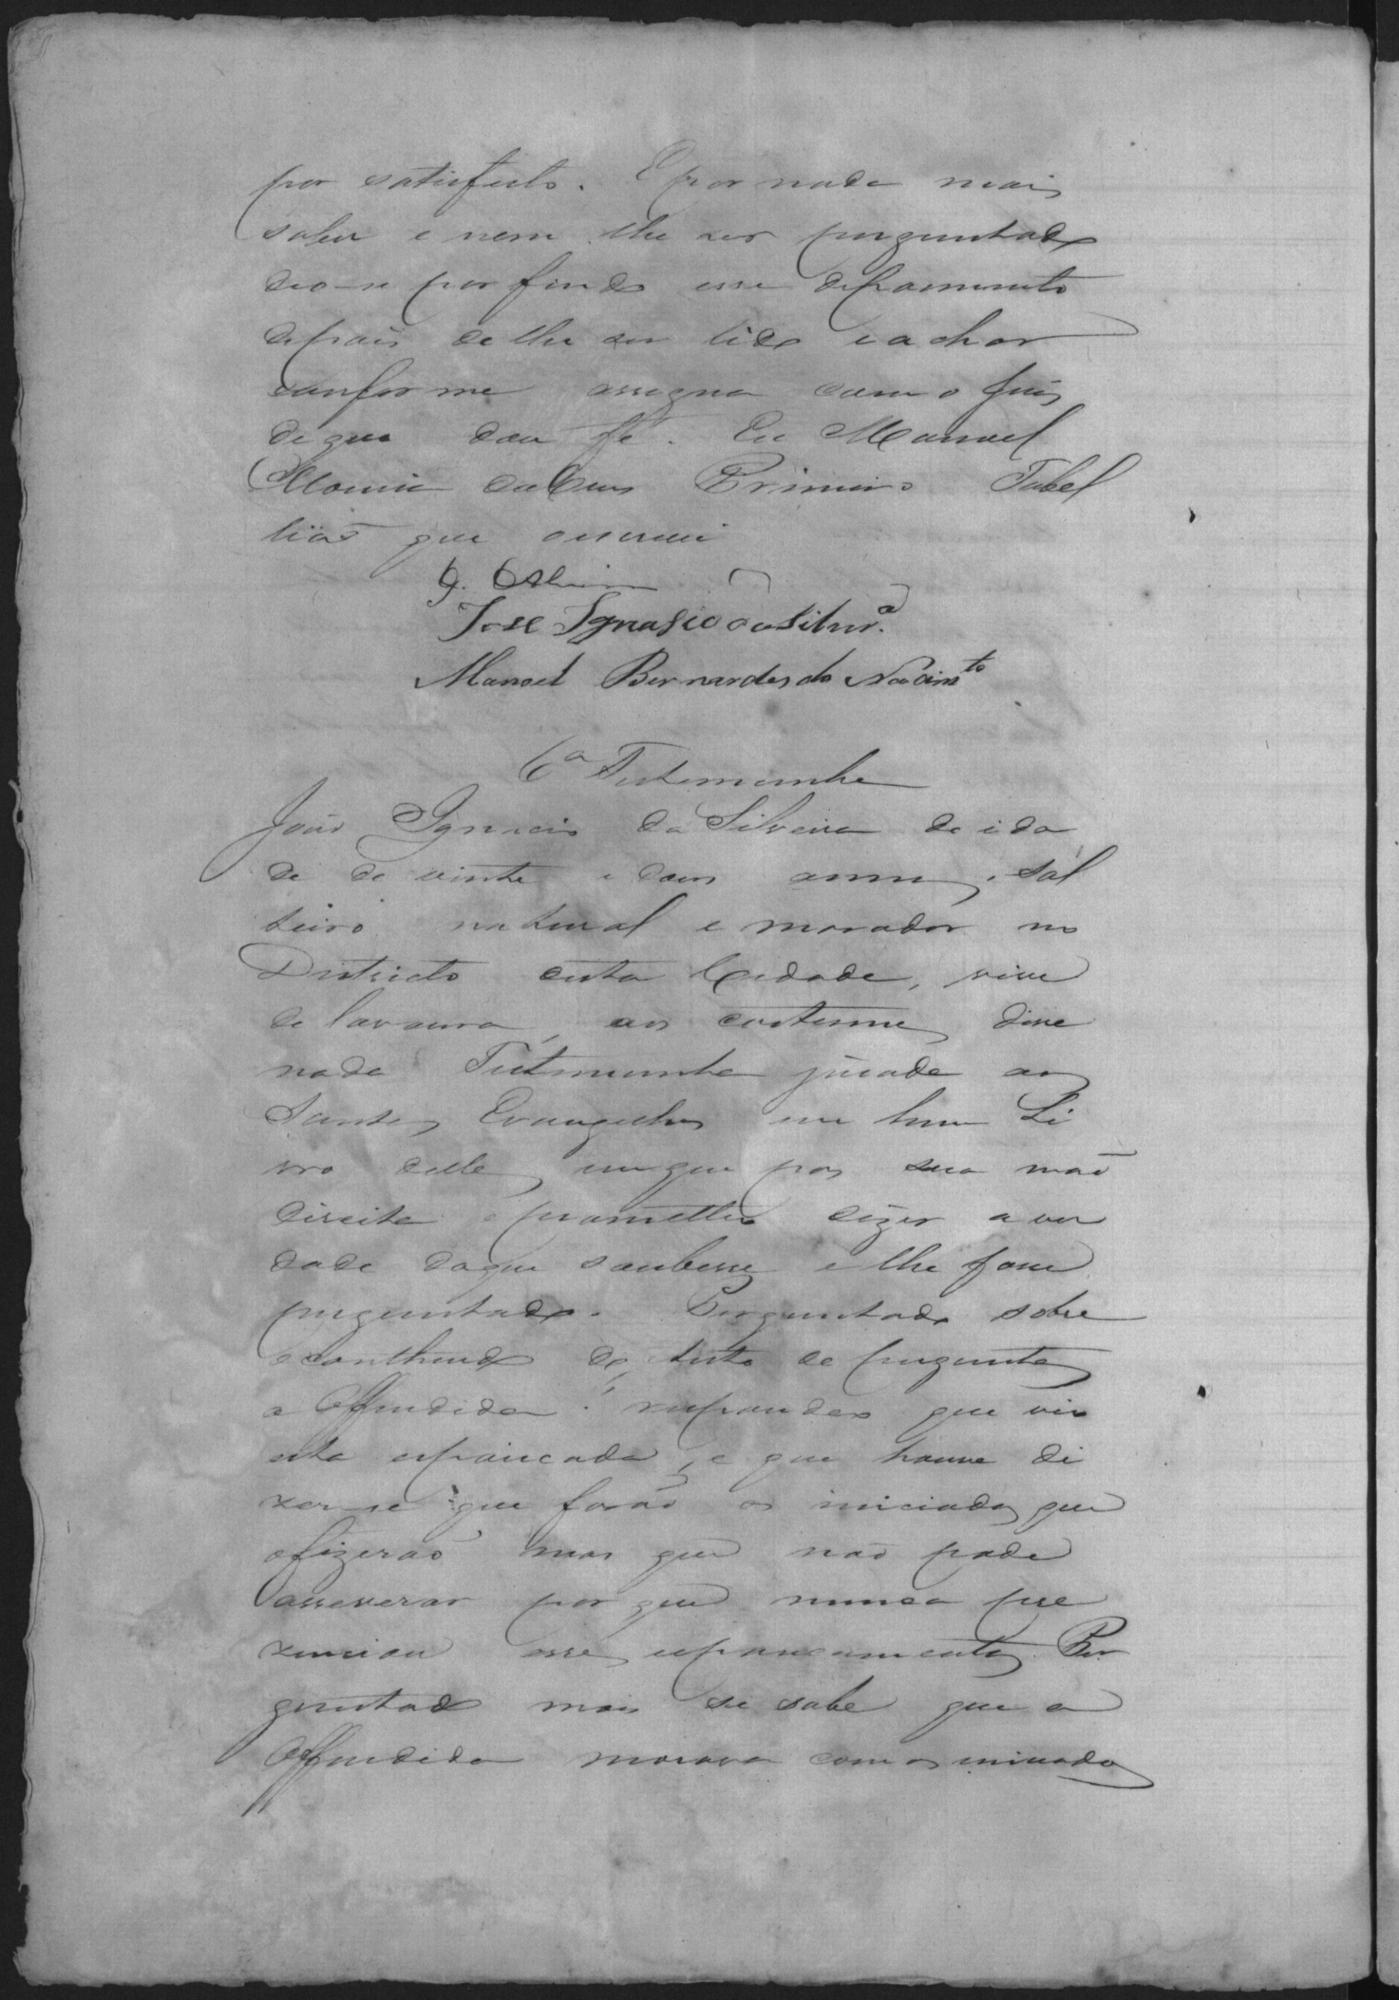 por satisfeito. E por nada mais
saber e nem lhe ser perguntado
deo-se por findo esse depoimento
depois de lhe ser lido e achar
conforme assigna com o Juis
de que dou fé. Eu Manoel
Primeiro Tabel
lião que escrevi
José Ignasio da Silvrª
Manoel Bernardes do Nascimto
6ª Testemunha
João Ignacio da Silveira de ida
de de vinte e dous annos, sol
teiro natural e morador no
Districto desta Cidade, vive
de lavoura, aos costumes disse
nada Testemunha jurada aos
Santos Evangelhos em hum Li
vro delles em que pos sua mão
direita e prometteo dizer a ver
dade do que soubesse e lhe fosse
perguntado. Perguntado sobre
o conthiudo do auto de perguntas
a Offendida? respondeo que vio
esta espancada, e que houve di
zer-se que forão os iniciados que
o fizerão mas que não pode
asseverar por que nunca pre
senciou esses espancamentos. Per
guntado mais se sabe que a
Offendida morava com os iniciados